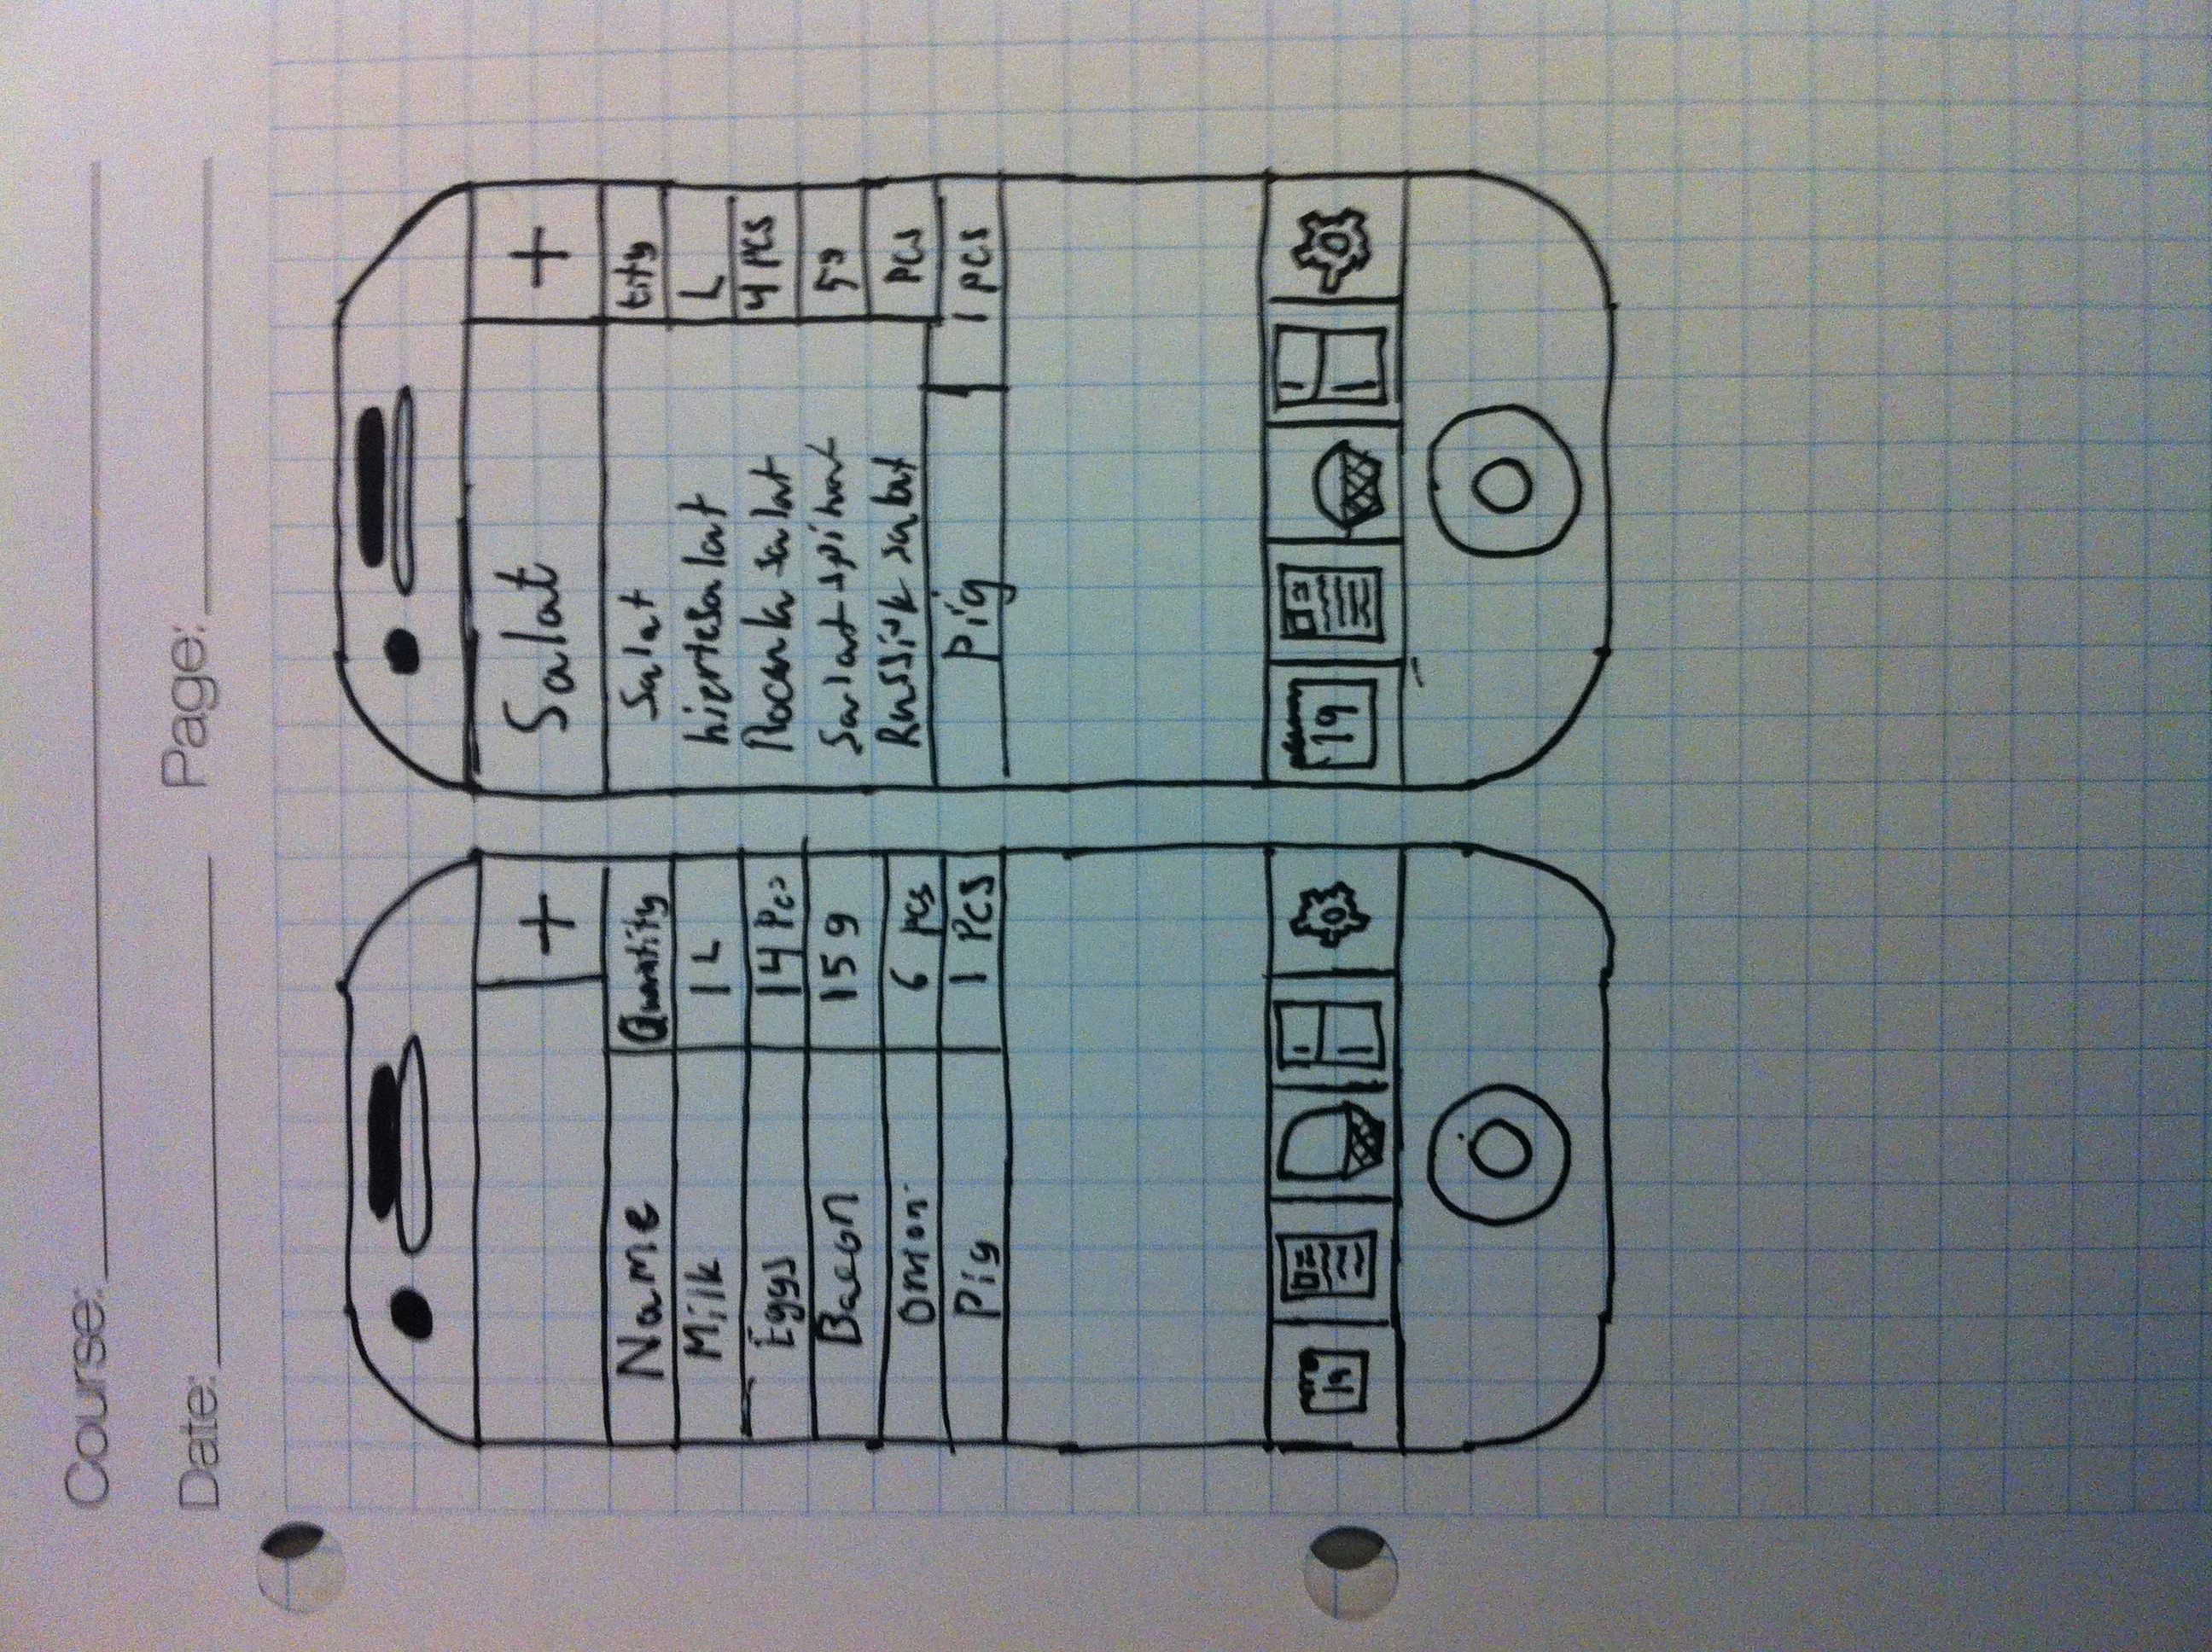 Course:
Date: Page:
+
Name Quantity
Milk 1 L
Eggs 14 Pcs
Bacon 15 g
Onion 6 pcs
Pig 1 PCS
19
Salat +
Salat tity
hjertesalat L
salat 4 PCS
Salat spinat 5g
Russisk salat PCS
Pig 1 pcs
19